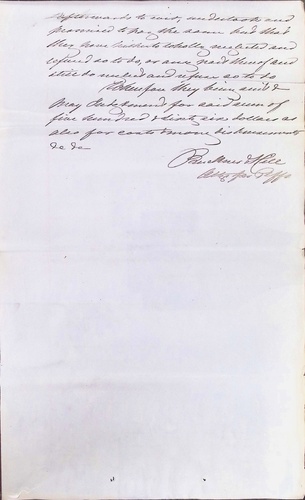 afterwards to wit, undertook and
promised to pay the same but that
they have hitherto wholly neglected and
refused so to do, or any part thereof and
still do neglect and refuse so to do
Wherefore they bring suit &
Pray Judgement for said sum of
five hundred & sixty six dollars as
also for costs & more disbursements
&c &c
& Hill
Attys for Plffs